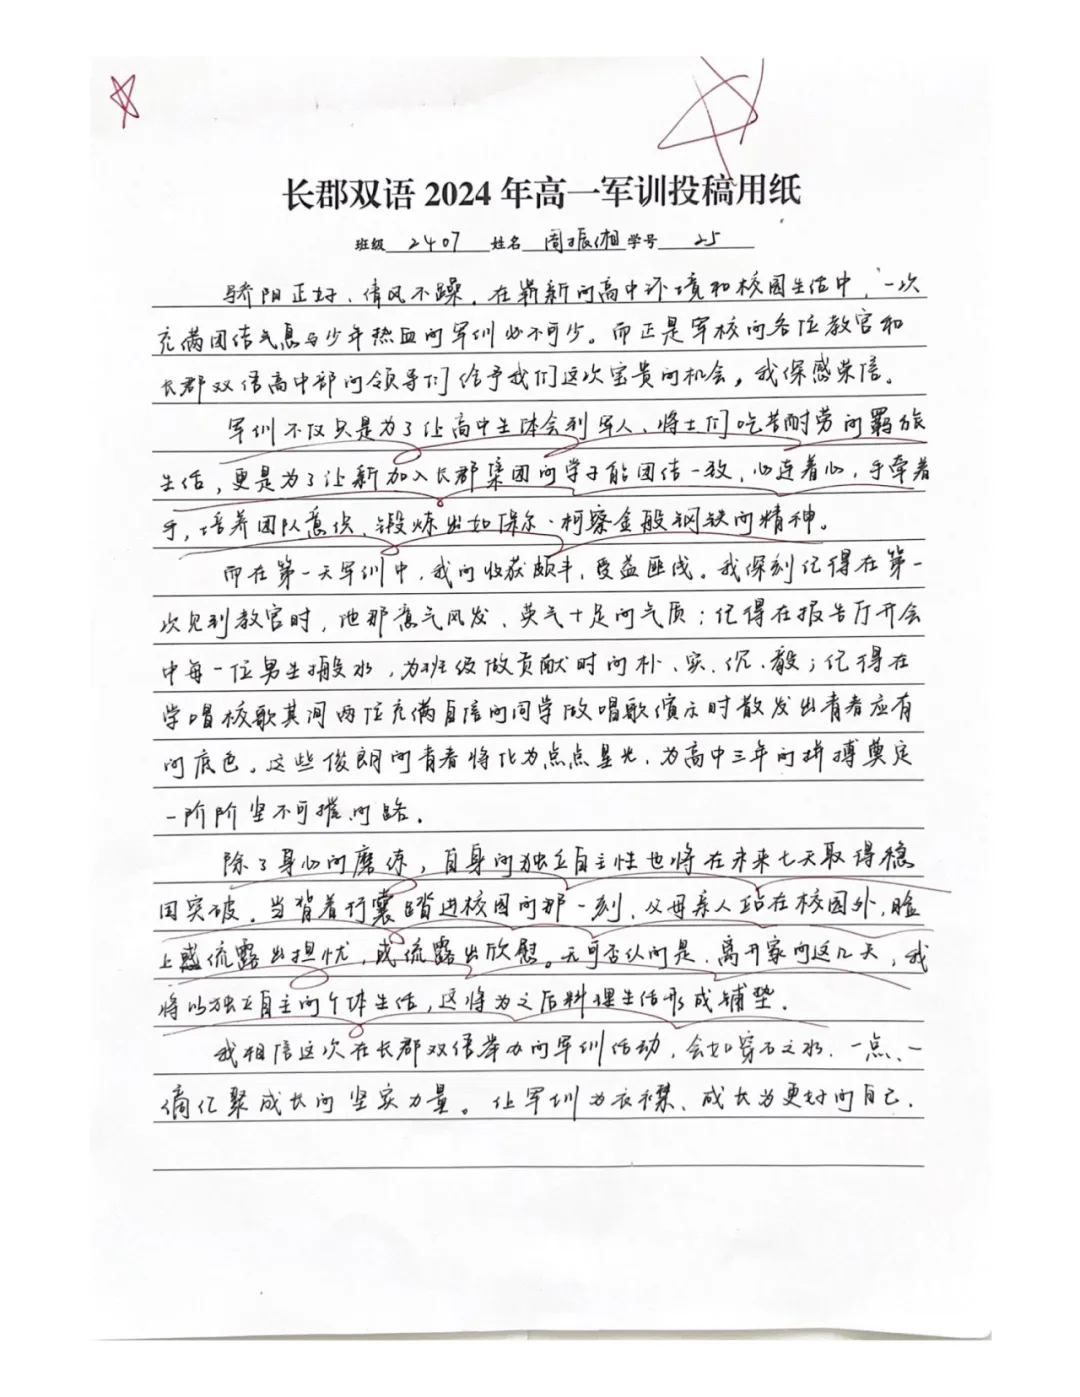 长郡双语 2024 年高一军训投稿用纸
班级 2407 姓名 周振湘 学号 25
骄阳正好、清风不躁。在崭新的高中环境和校园生活中，一次
充满团结气息与少年热血的军训必不可少。而正是军校的各位教官和
长郡双语高中部的领导们给予我们这次宝贵的机会，我深感荣信。
军训不仅只是为了让高中生体会到军人、将士们吃苦耐劳的羁旅
生活，更是为了让新加入长郡集团的学子能团结一致，心连着心，手牵着
手，培养团队意识，锻炼出如保尔·柯察金般钢铁的精神。
而在第一天军训中，我的收获颇丰，受益匪浅。我深刻记得在第一
次见到教官时，他那意气风发、英气十足的气质；记得在报告厅开会
中每一位男生搬水，为班级做贡献时的朴、实、沉、毅；记得在
学唱校歌其间两位充满自信的同学做唱歌演示时散发出青春应有
的底色。这些俊朗的青春将化为点点星光，为高中三年的拼搏奠定
一阶阶坚不可摧的路。
除了身心的磨练，自身的独立自主性也将在未来七天取得稳
固突破。当背着行囊踏进校园的那一刻，父母亲人站在校园外，脸
上或流露出担忧，或流露出欣慰。无可否认的是，离开家的这几天，我
将以独立自主的个体生活，这将为之后料理生活形成铺垫。
我相信这次在长郡双语举办的军训活动，会如穿石之水，一点、一
滴亿聚成长的坚实力量。让军训为衣襟，成长为更好的自己。